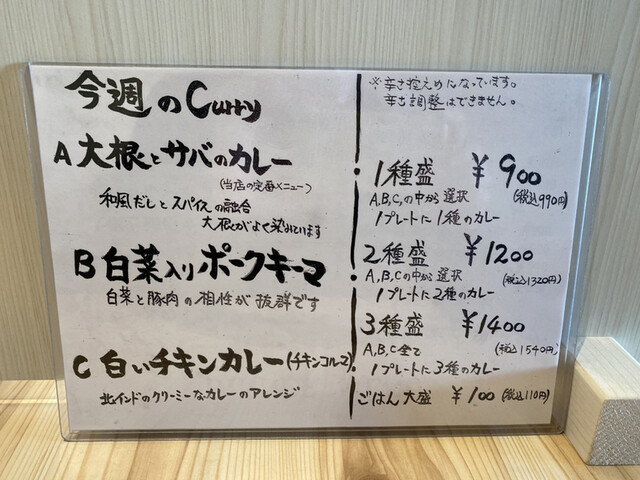 今週のCurry
A 大根とサバのカレー
(当店の定番メニュー)
和風だしとスパイスの融合
大根がよく染みています
B 白菜入りポークキーマ
白菜と豚肉の相性が抜群です
C 白いチキンカレー(チキンコルマ)
北インドのクリーミーなカレーのアレンジ
※辛さ控えめになっています。
辛さ調整はできません。
・1種盛 ¥900
A,B,Cの中から選択 (税込990円)
1プレートに1種のカレー
・2種盛 ¥1200
A,B,Cの中から選択 (税込1320円)
1プレートに2種のカレー
・3種盛 ¥1400
A,B,C全て (税込1540円)
1プレートに3種のカレー
ごはん大盛 ¥100 (税込110円)